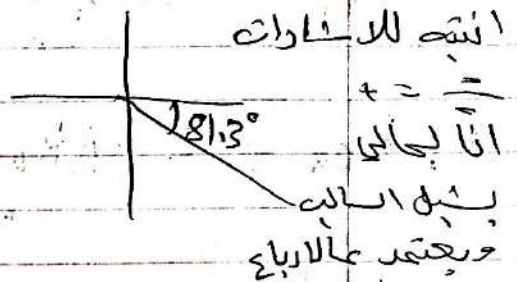 انتبه للاشارات
- / - = +
انا لحالي
81.3°
بشيل السالب
وبعتمد عالارباع